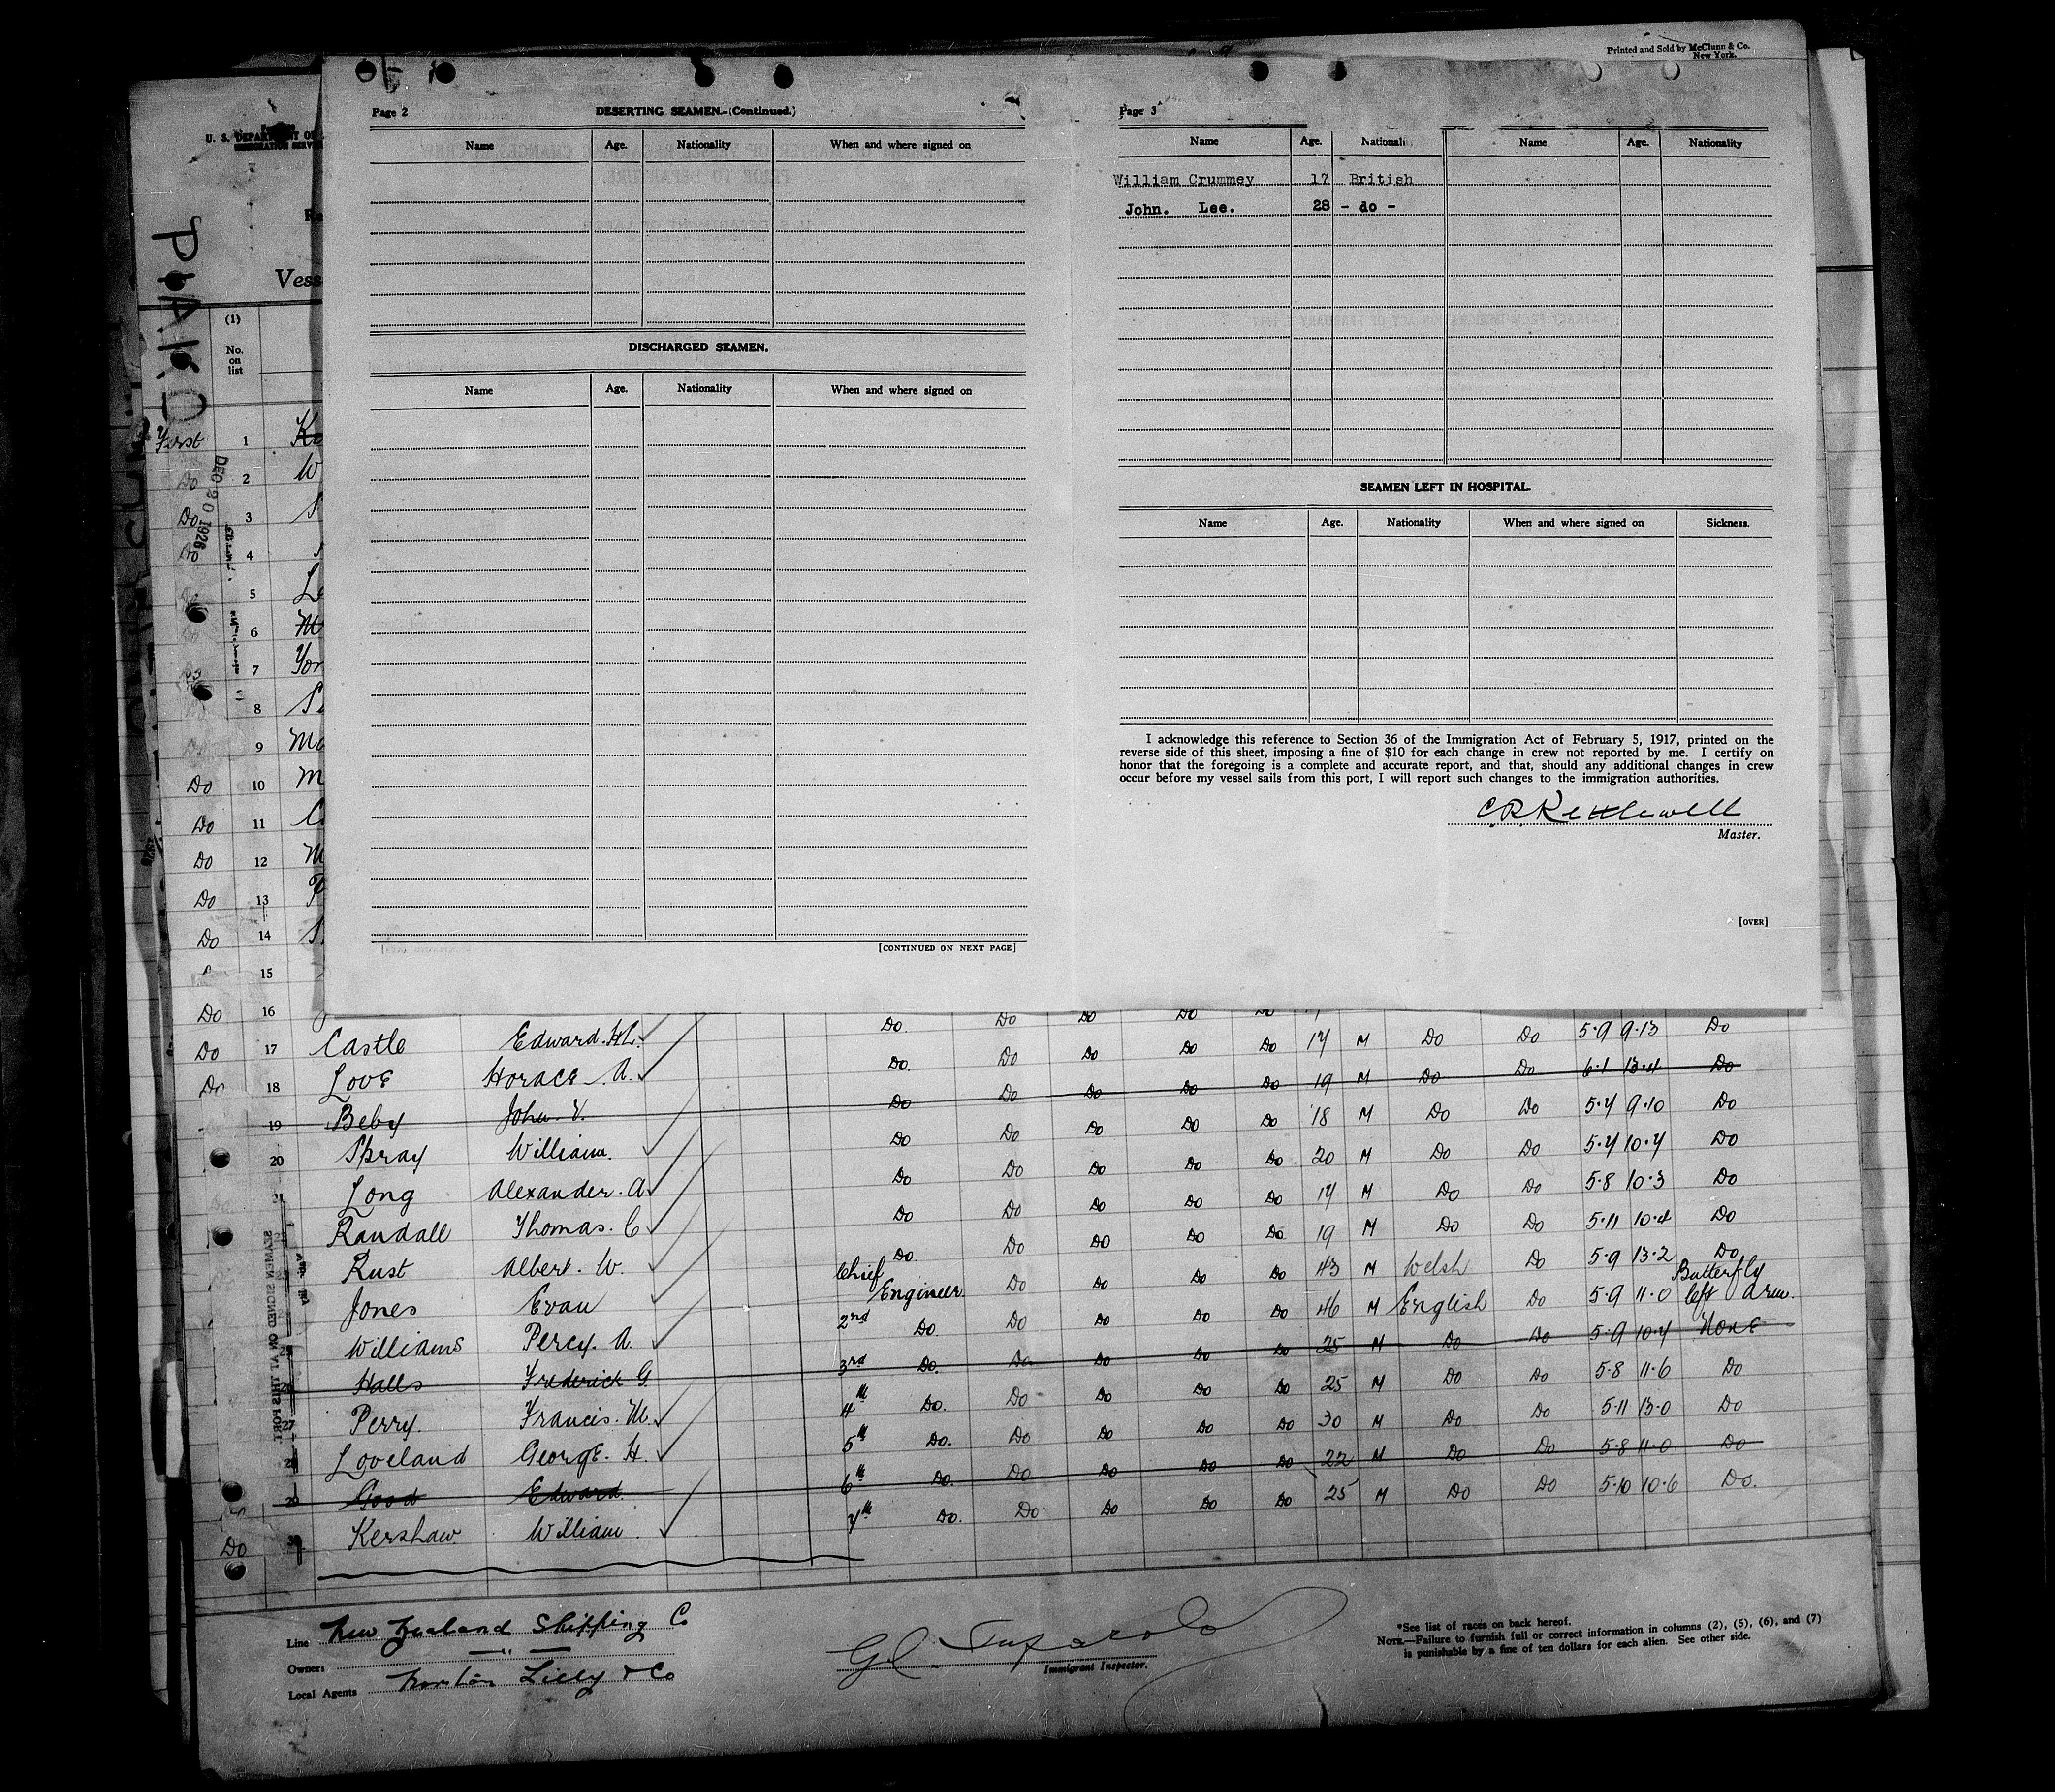 Printed and Sold by McClunn & Co.
New York.
Page 2
DESERTING SEAMEN.—(Continued.)
Name Age. Nationality When and where signed on
DISCHARGED SEAMEN.
Name Age. Nationality When and where signed on
[CONTINUED ON NEXT PAGE]
Page 3
Name Age. Nationali Name Age. Nationality
William Crummey 17 British
John. Lee. 28 - do -
SEAMEN LEFT IN HOSPITAL.
Name Age. Nationality When and where signed on Sickness.
I acknowledge this reference to Section 36 of the Immigration Act of February 5, 1917, printed on the
reverse side of this sheet, imposing a fine of $10 for each change in crew not reported by me. I certify on
honor that the foregoing is a complete and accurate report, and that, should any additional changes in crew
occur before my vessel sails from this port, I will report such changes to the immigration authorities.
C R Kettlewell
Master.
[OVER]
U. S. DEPARTMENT OF
IMMIGRATION SERV
Vess
PIAKO
(1)
No.
on
list
DEC 20 1926
First 1
Do 2 W
Do 3
Do 4
5
6
7
8
9
Do 10
Do 11
Do 12
Do 13
Do 14
15
Do 16 Do Do Do Do Do
Do 17 Castle Edward. H L. Do Do Do Do Do 17 M Do Do 5·9 9·13 Do
Do 18 Love Horace A. Do Do Do Do Do 19 M Do Do 6·1 13·4 Do
19 Beby John. V. Do Do Do Do Do 18 M Do Do 5·7 9·10 Do
20 Spray William. Do Do Do Do Do 20 M Do Do 5·7 10·7 Do
21 Long Alexander. A Do Do Do Do Do 17 M Do Do 5·8 10·3 Do
Randall Thomas. C Do Do Do Do Do 19 M Do Do 5·11 10·4 Do
Rust Albert. W. Do
Jones Evan Chief Engineer Do Do Do Do 43 M Welsh Do 5·9 13·2 Do
Williams Percy. A. 2nd Do. Do Do Do Do 46 M English Do 5·9 11·0 Butterfly left arm.
26 Halls Frederick G. 3rd Do. Do Do Do Do 25 M Do Do 5·9 10·7 None
27 Perry. Francis. M. 4th Do. Do Do Do Do 25 M Do Do 5·8 11·6 Do
28 Loveland George. H. 5th Do. Do Do Do Do 30 M Do Do 5·11 13·0 Do
29 Good Edward. 6th Do. Do Do Do Do 22 M Do Do 5·8 11·0 Do
Do 30 Kershaw. William. 7th Do. Do Do Do Do 25 M Do Do 5·10 10·6 Do.
SEAMEN SIGNED ON AT THIS PORT
Line New Zealand Shipping Co
Owners — " —
Local Agents Norton Lilly & Co
Immigrant Inspector.
*See list of races on back hereof.
NOTE.—Failure to furnish full or correct information in columns (2), (5), (6), and (7)
is punishable by a fine of ten dollars for each alien. See other side.